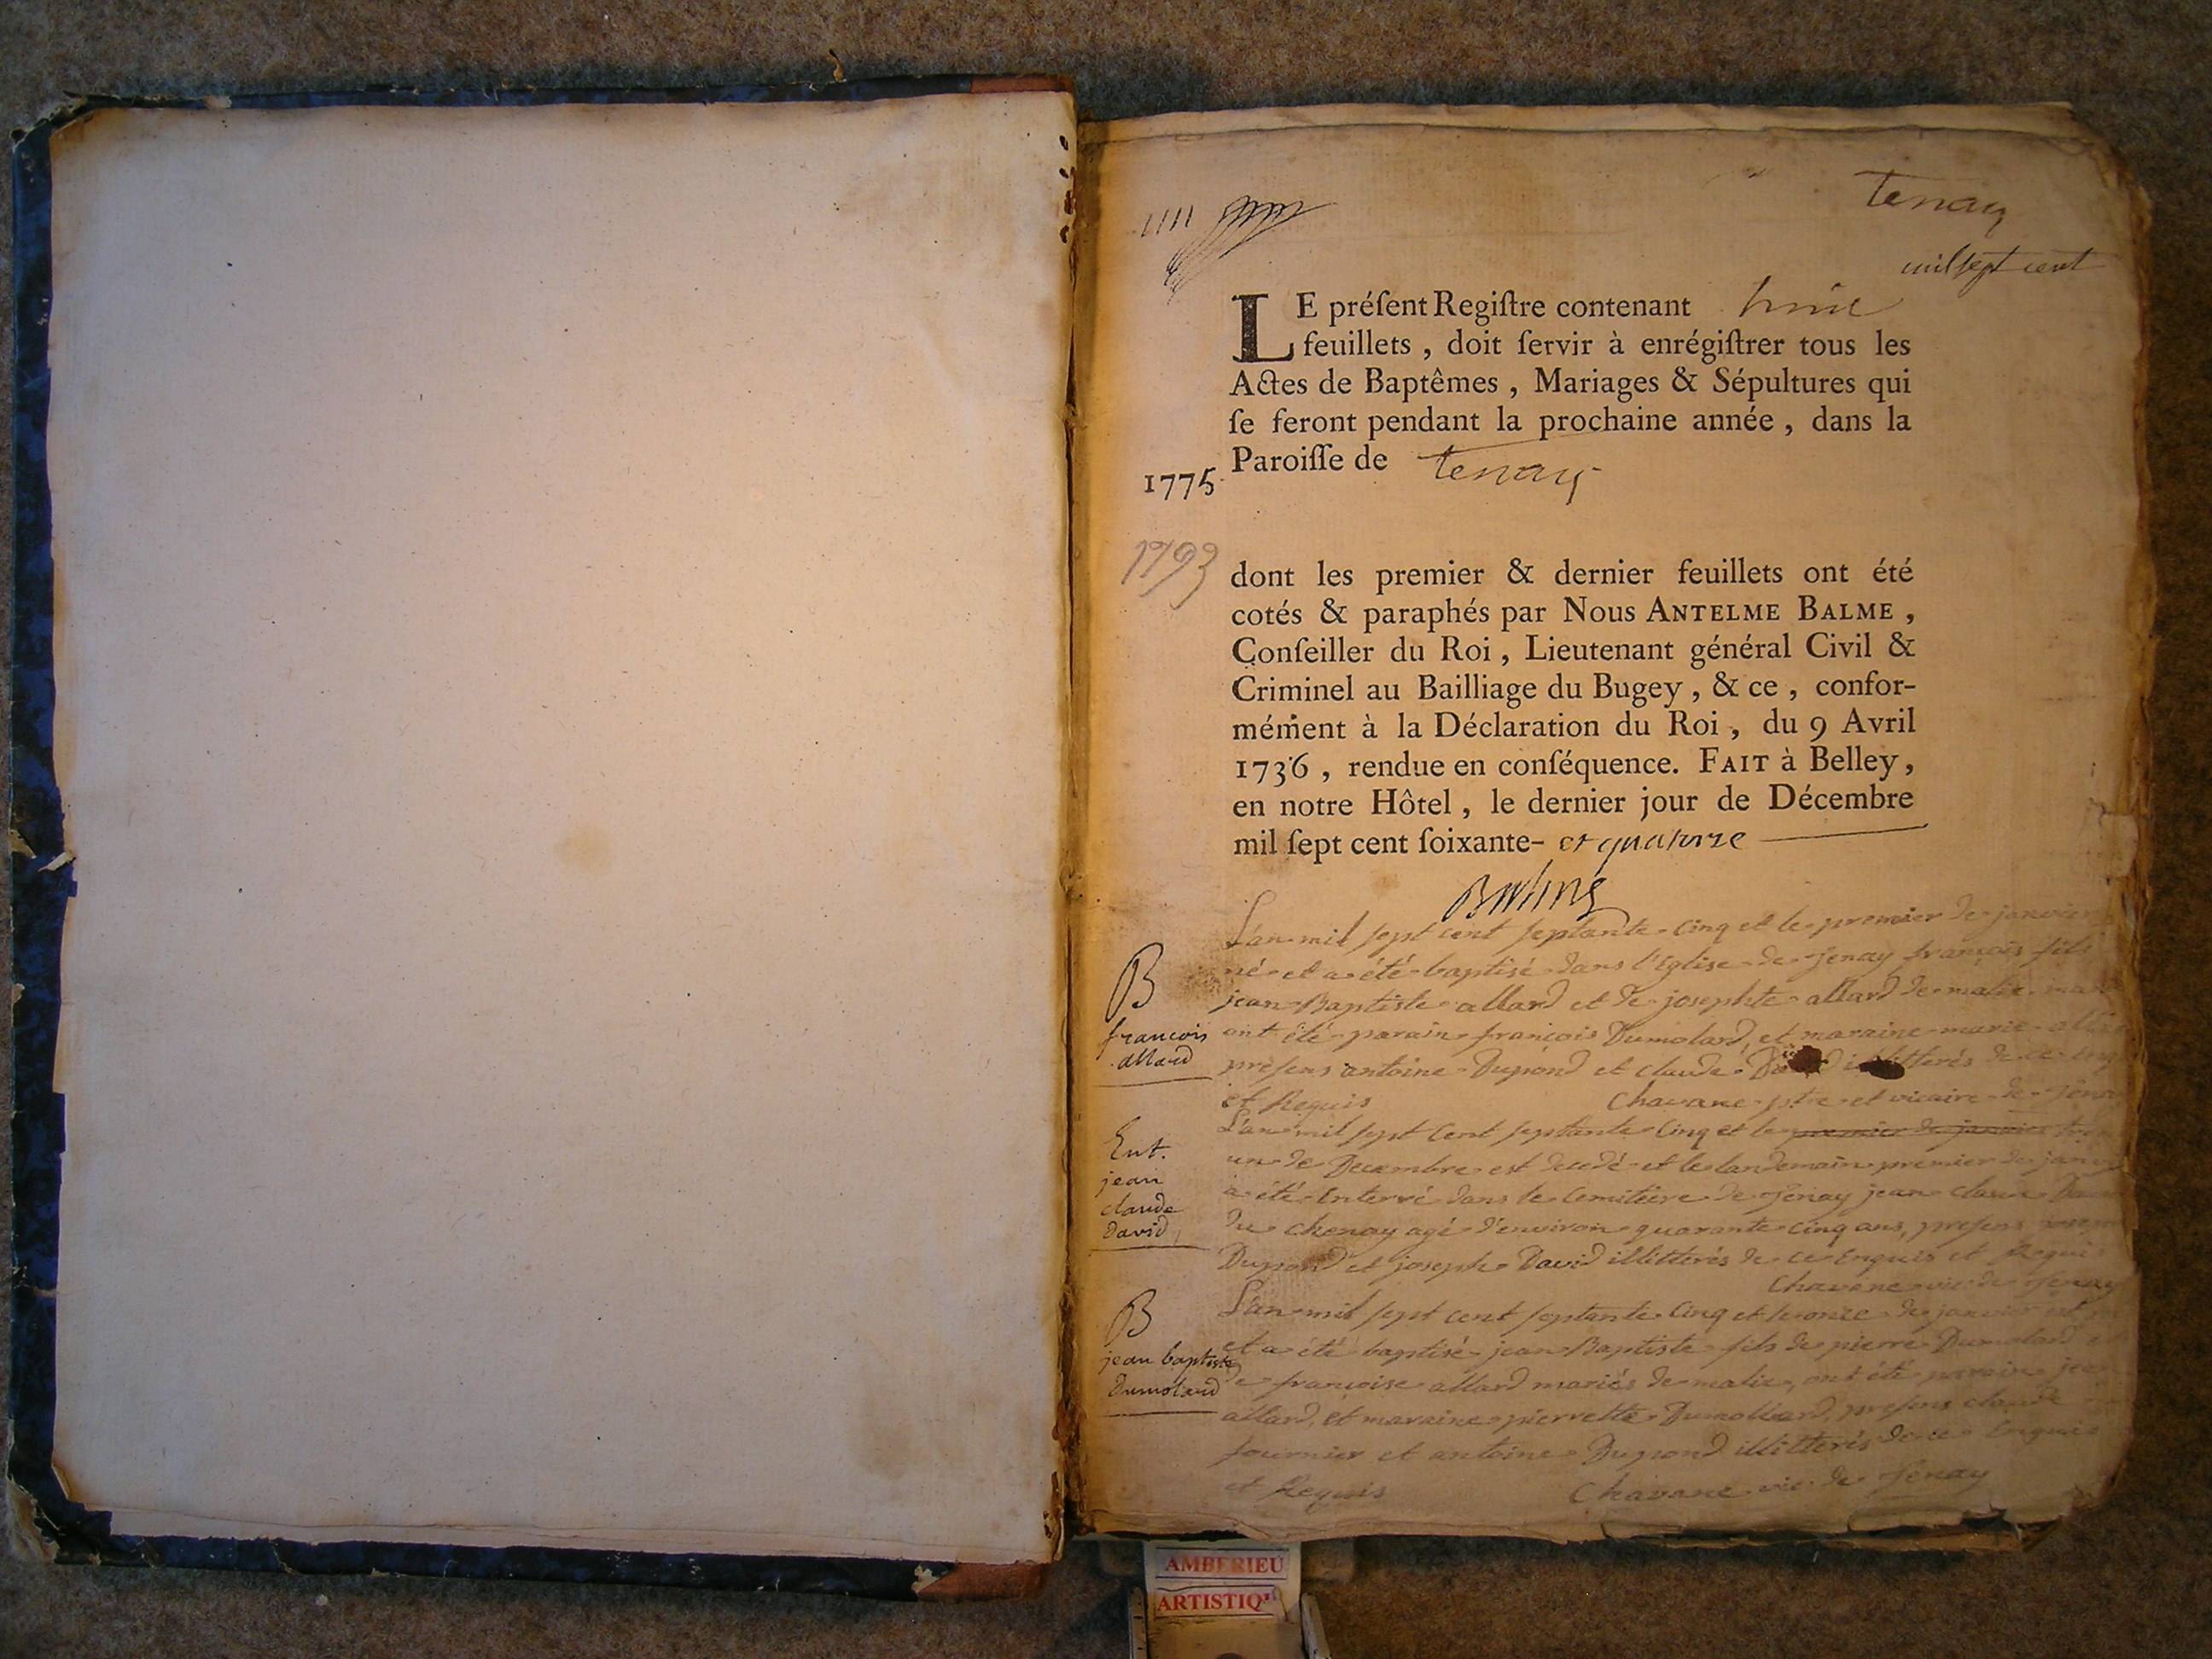 tenay
mil sept cent
LE préſent Regiſtre contenant huit
feuillets , doit ſervir à enrégiſtrer tous les
Actes de Baptêmes , Mariages & Sépultures qui
ſe feront pendant la prochaine année , dans la
Paroiſſe de tenay
1775
1793
dont les premier & dernier feuillets ont été
cotés & paraphés par Nous ANTELME BALME ,
Conſeiller du Roi , Lieutenant général Civil &
Criminel au Bailliage du Bugey , & ce , confor-
mément à la Déclaration du Roi , du 9 Avril
1736 , rendue en conſéquence. FAIT à Belley ,
en notre Hôtel , le dernier jour de Décembre
mil ſept cent ſoixante- et quatorze
B
francois
allard
L'an mil sept cent septante cinq et le premier de janvier
né et a été baptisé dans l'Eglise de Tenay françois fils
jean Baptiste allard et de josephte allard de malix
ont été parain françois Dumolard, et maraine marie
presens antoine Dupond et claude illitterés de ce
et Requis Chavane ptre et vicaire de Tenay
Ent.
jean
claude
David
L'an mil sept cent septante cinq et le premier de janvier
un de Decembre est decedé et le landemain premier de
a été Enterré dans le Cemitière de Tenay jean claude
du chenay agé d'environ quarante cinq ans, presens
Dupond et joseph David illitterés de ce Enquis et Requis
Chavane vic. de Tenay
B
jean baptiste
Dumolard
L'an mil sept cent septante cinq et le onze de janvier est
et a été baptisé jean Baptiste fils de pierre Dumolard
françoise allard mariés de malix, ont été parain
allard, et maraine pierrette Dumollard, presens claude
fournier et antoine Dupond illitterés de ce Enquis
et Requis Chavane vic. de Tenay
AMBERIEU
ARTISTIQ